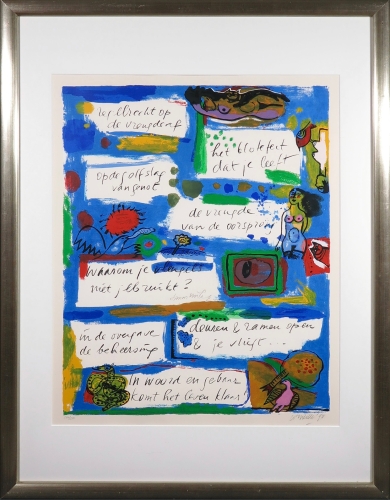 op
de vreugde
het
dat je leeft
op de golfslag
van genot
de vreugde
van de oorsprong
waarom je vleugels
niet gebruikt?
in de overgave
de beheersing
deuren & ramen open
& je vliegt...
In woord en gebaar
komt het leven klaar!